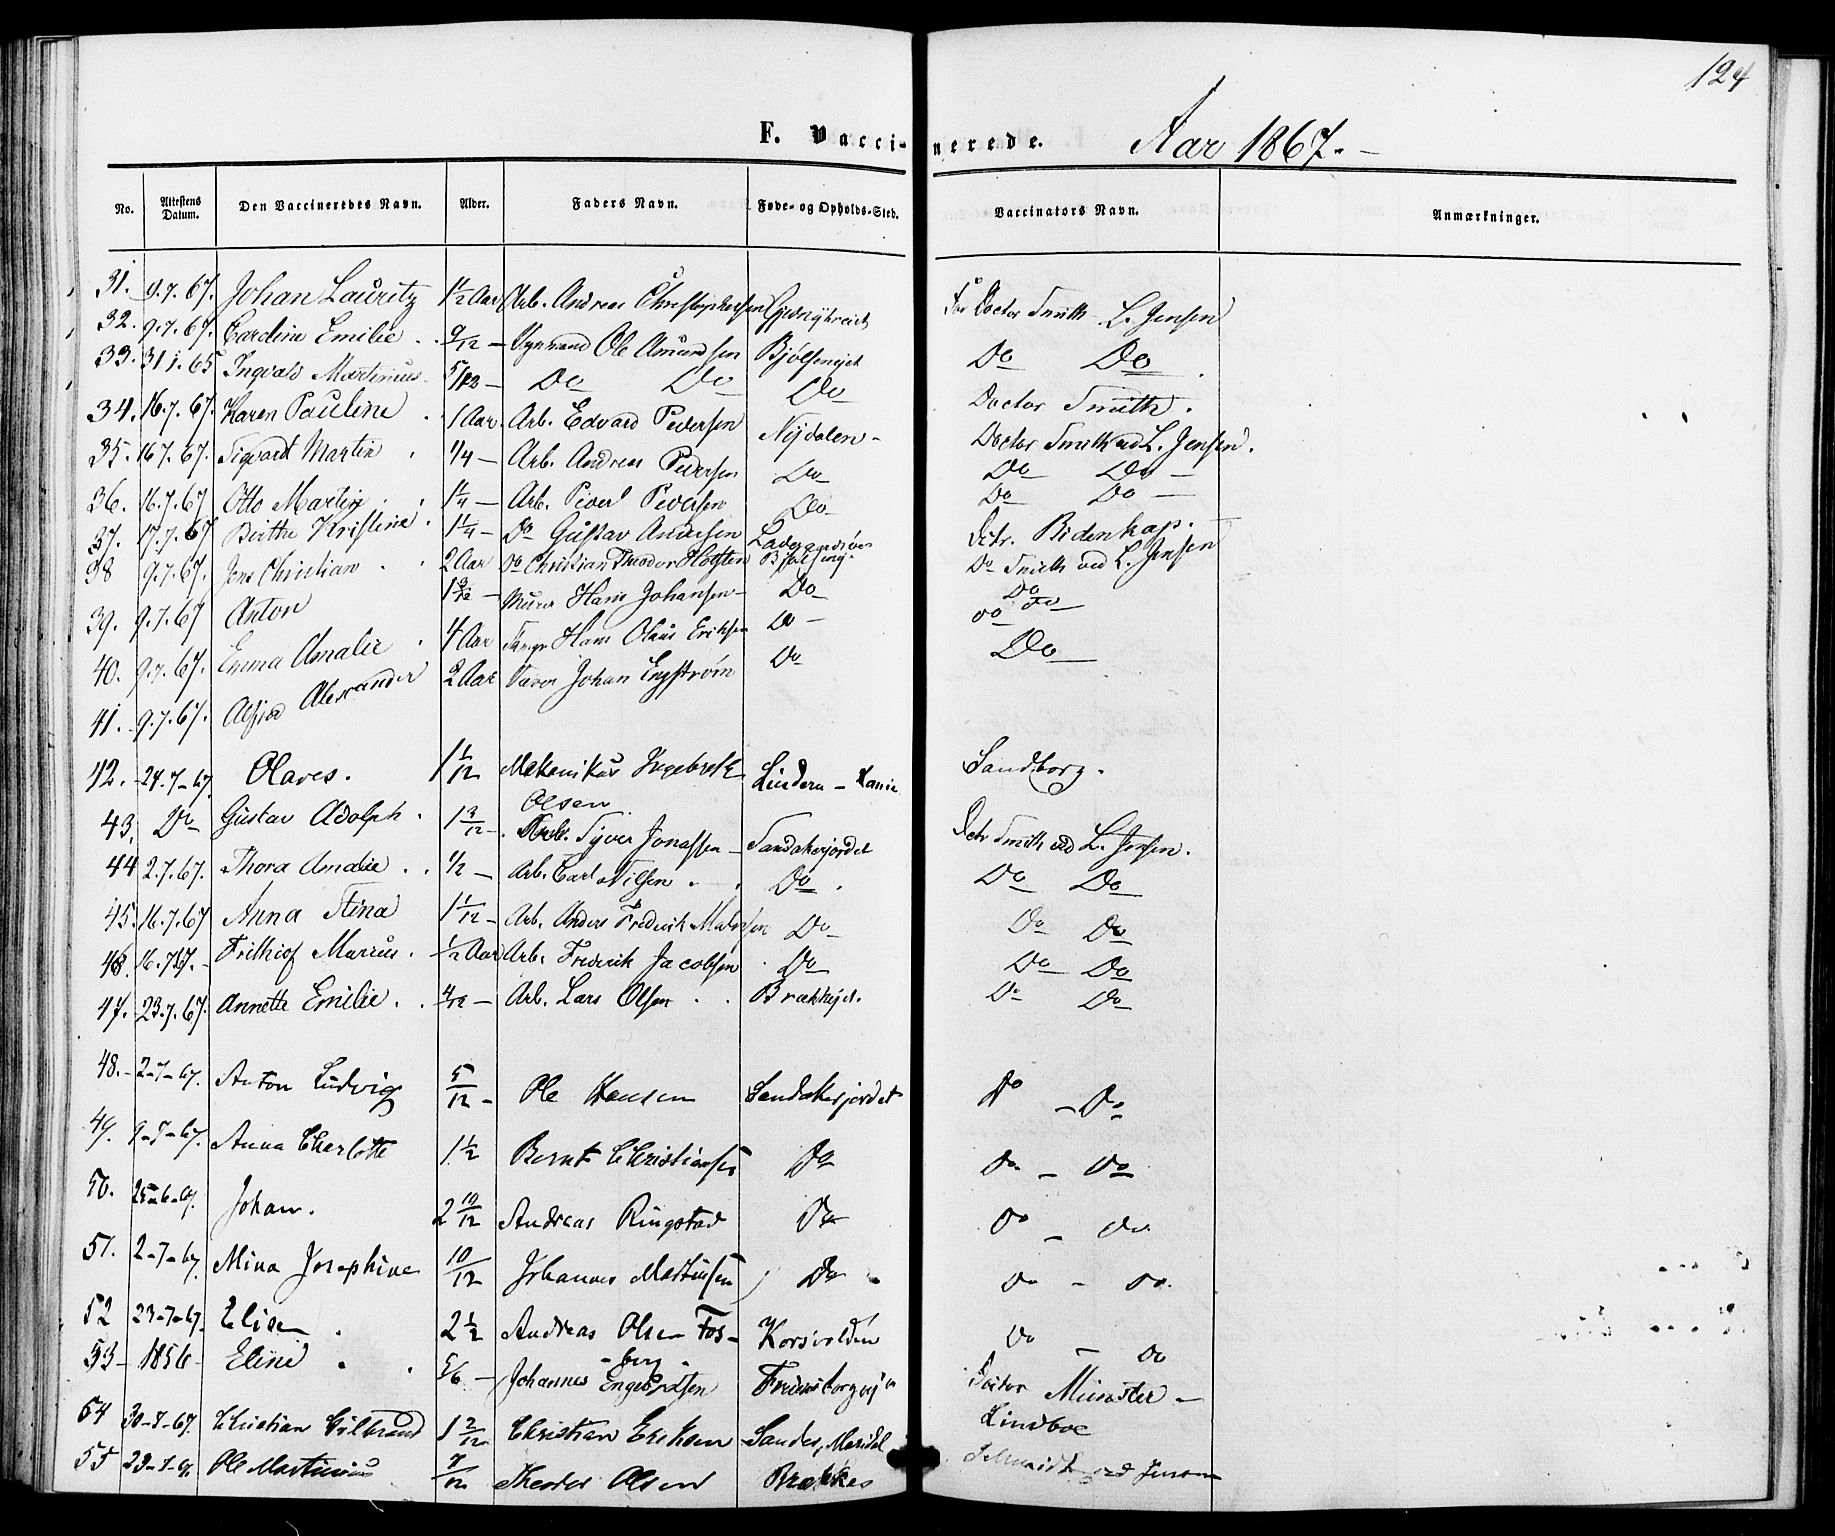 124
F. Vaccinerede. Aar 1867.
No. Attestens Datum. Den Vaccineredes Navn. Alder. Faders Navn. Føde- og Opholds-Sted. Vaccinators Navn. Anmærkninger.
31. 9.7.67. Johan Lauritz 1/2 Aar Arb. Andreas Christophersen Doctor Smith L. Jensen
32. 9.7.67. Caroline Emilie 9/12 Ole Amundsen Bjølsenjet Do Do
33. 31 1. 65 Ingvald Martinius Do Do Do Doctor Smith.
34. 16.7.67. Karen Pauline 1 Aar Arb. Edvard Pedersen Nydalen Doctor Smith ved L. Jensen.
35. 16.7.67. Sigvart Martin 1/4 Arb. Andreas Pedersen Do Do Do
36. 16.7.67 Otto Martin 1 1/4 Arb. Peder Pedersen Do Do Do
37. 17.7.67 Berthe Kristine 1 1/4 Do Gustav Andersen Dctr. Bidenkap.
38 9.7.67. Jens Christian 2 Aar Do Christian Theodor Holsten Do Smith ved L. Jensen
39. 9.7.67 Anton 1 9/12 Murer Hans Johansen Do Do Do
40. 9.7.67. Emma Amalie 4 Aar Hans Olaus Eriksen Do Do
41. 9.7.67. Alfred Alexander 2 Aar Johan Engstrøm Do
42. 24.7-67 Olaves. 1 1/12 Mekanikus Ingebret Olsen Lindern Sandborg.
43. Do Gustav Adolph 1 3/12 Arb. Syver Jonassen Sandakerjordet Dctr Smith ved L. Jensen.
44 2.7.67. Thora Amalie 1/2 Arb. Carl Nilsen Do Do Do
45. 16.7.67 Anna Stina 1 1/12 Arb. Anders Frederik Do Do Do
46. 16.7.67. Frithiof Marius 1/2 Aar Arb. Frederik Jacobsen Do Do Do
47. 23.7.67. Annette Emilie 4/12 Arb. Lars Olsen Do Do
48. 2-7-67. Anton Ludvig 5/12 Ole Hansen Sandakerjordet Do Do
49. 9-7-67. Anna Charlotte 1 1/2 Bernt Christiansen Do Do Do
50. 25-6-67. Johan. 2 10/12 Andreas Ringstad Do Do Do
51. 2-7-67. Mina Josephine 10/12 Johannes Martinsen Do Do Do
52 23-7-67. Elise 2 1/2 Andreas Olsen Fosberg Korsvolden Do Do
53 1856 Eline 5/6 Johannes Engebretsen Doctor Münster
54 30-7-67. Christian 1 2/12 Christian Eriksen Sander, Maridal Lindboe
55 Ole Martinius Theodor Olsen Brekke Schmidt ved Jensen